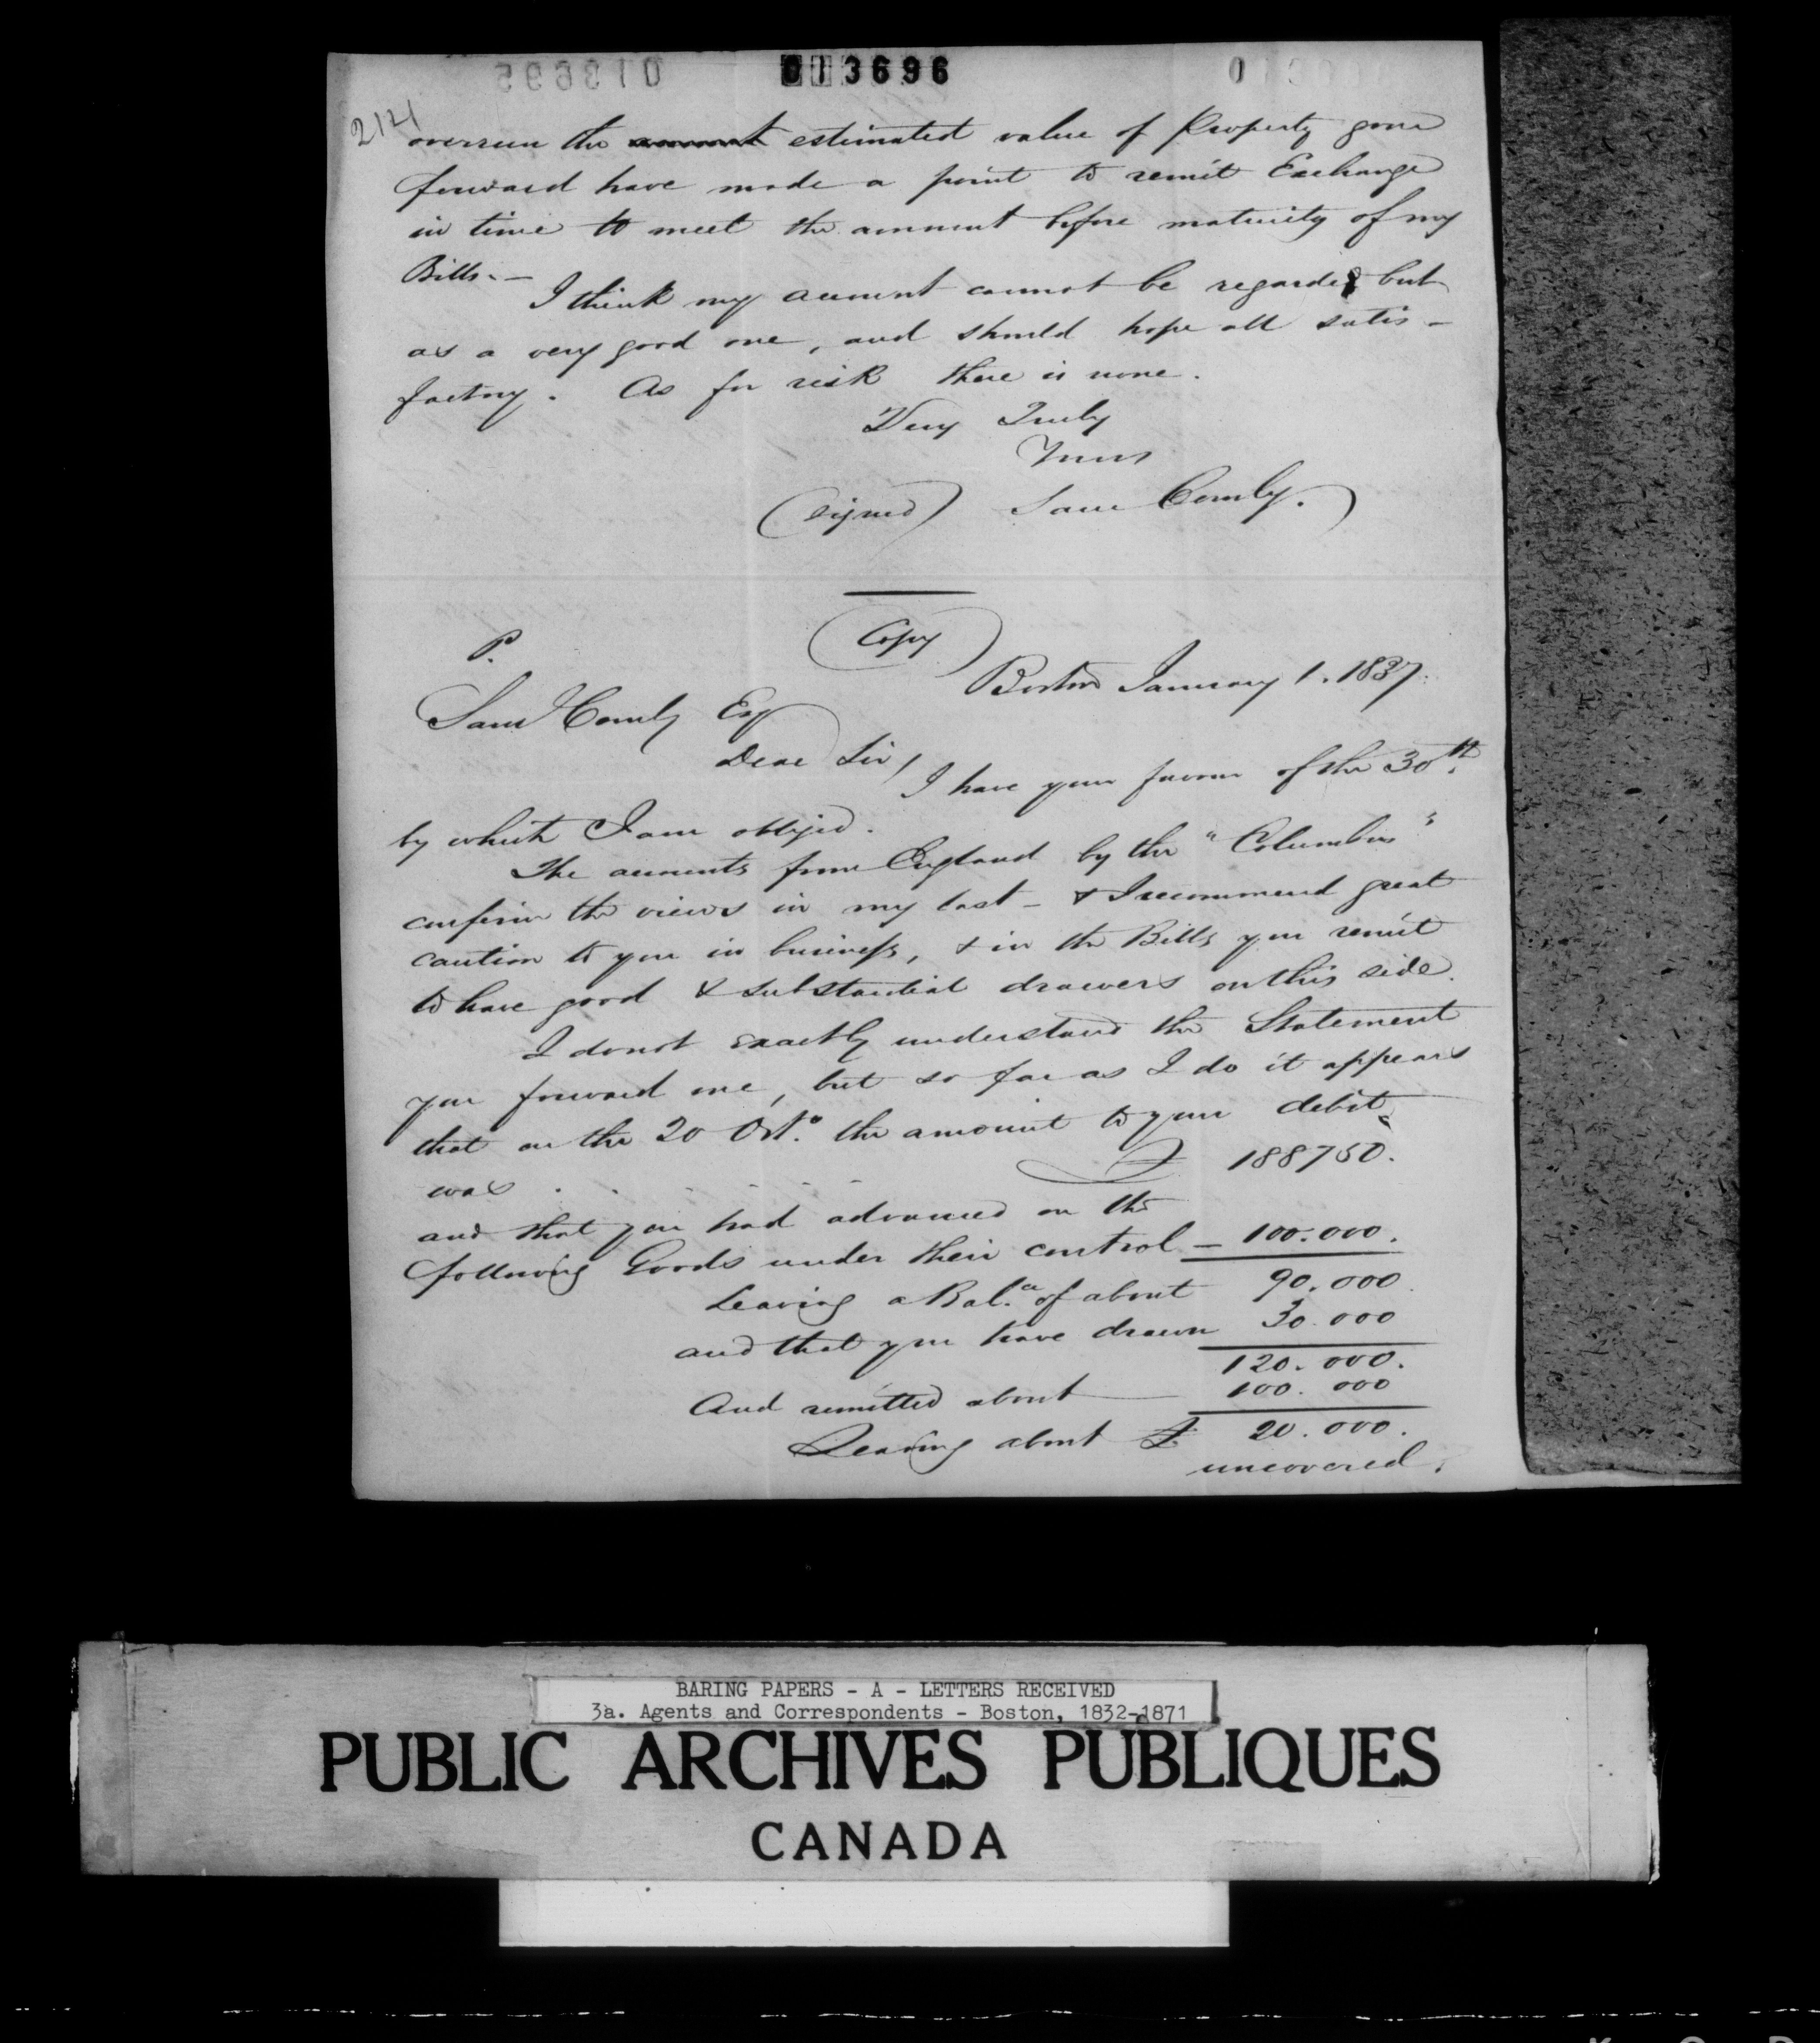 013696
2121
overrun the amount estimated value of Property gone
forward have made a point to remit Exchange
in time to meet the amount before maturity of my
Bills. —
I think my account cannot be regarded but
as a very good one, and should hope all satis-
factory. As for risk there is none.
Very Truly
Yours
(signed) Sam Comly.
(Copy)
P.
Boston January 1. 1837.
Sam Comly Esq
Dear Sir,
I have your favour of the 30th.
by which I am obliged.
The accounts from England by the "Columbus"
confirm the views in my last - & I recommend great
caution to you in business, & in the Bills you remit
to have good & substantial drawers on this side.
I do not exactly understand the Statement
you forward me, but so far as I do it appears
that on the 20 Octo. the amount to your debit
was . . . . . £ 188750.
and that you had advanced on the
following Goods under their control — 100.000.
Leaving a Bal.ce of about 90.000
and that you have drawn 30.000
120.000.
And remitted about 100.000
Leaving about £ 20.000.
uncovered.
BARING PAPERS - A - LETTERS RECEIVED
3a. Agents and Correspondents - Boston, 1832-1871
PUBLIC ARCHIVES PUBLIQUES
CANADA